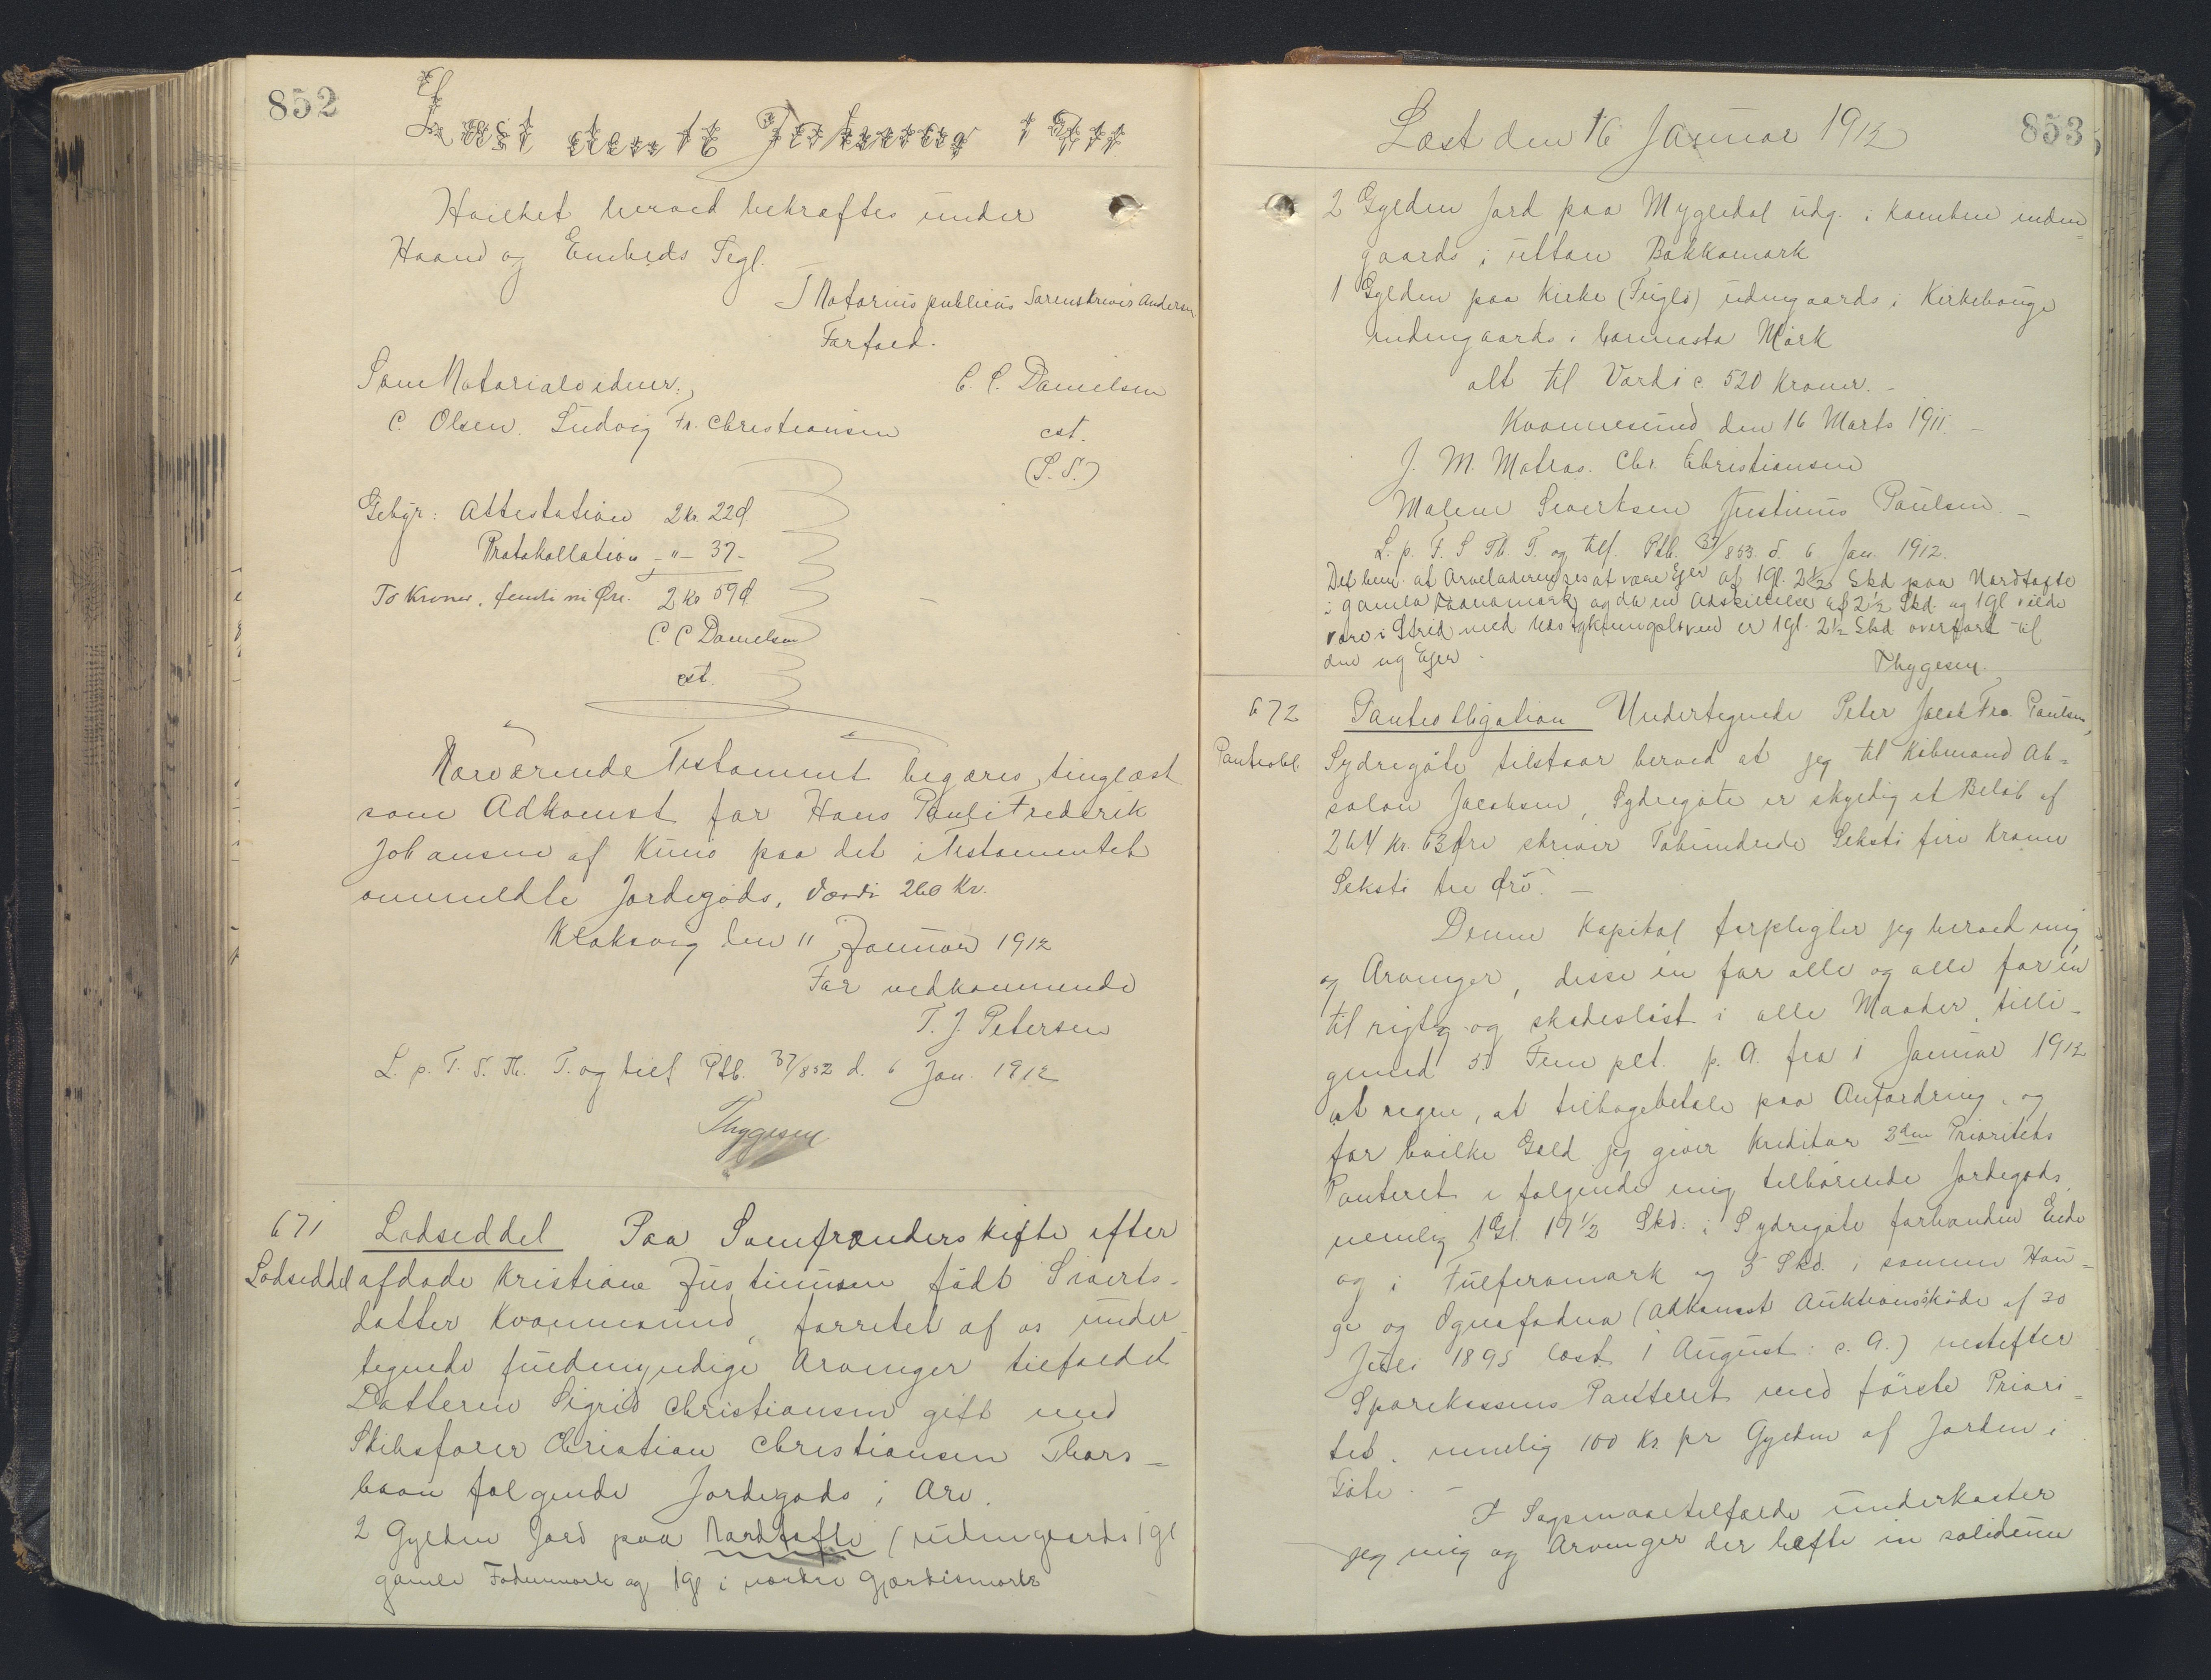 852
Læst den 16 Januar 1912
Hvilket herved bekræftes under
Haand og Embeds Segl.
I Notarius publicus Sorenskriver Andersen
Forfald.
Som Notarialvidner:
C. C. Danielsen
C. Olsen. Ludvig Fr. Christiansen
cst.
(L. S.)
Gebyr: Attestation 2 Kr. 22 Ø
Protokollation - " - 37 -
To Kroner, femti ni Øre. 2 Kr 59 Ø
C. C Danielsen
cst.
Nærværende Testament begæres tinglæst
som Adkomst for Hans Pauli Frederik
Johansen af Kunø paa det i Testamentet
ommeldte Jordegods, Værdi 260 Kr.
Klaksvig den 11 Januar 1912
For vedkommende
T. J. Petersen
L. p. F. S. Th. T. og tilf Ptb. 37/852 d. 6 Jan. 1912
Thygesen
671 Lodseddel Paa Samfrænderskifte efter
Lodseddel afdøde Kristiane Justinussen født Siverts-
datter Kvannesund, forrettet af os under-
tegnede fuldmyndige Arvinger tilfaldt
Datteren Sigrid Christiansen gift med
Skibsfører Christian Christiansen Thors-
havn følgende Jordegods i Arv.
2 Gylden Jord paa Nordtofte (udengaards 1 gl
gamle Fodunmark og 1 gl i nordre Gjerdismark
Læst den 16 Januar 1912
853
2 Gylden Jord paa Mygledal udg. i Kamben inden=
gaards i uttan Bakkamark
1 Gylden paa Kirke (Fuglø) udengaards i Kirkehauge
indengaards i Hannasta Mark
alt til Værdi c. 520 Kroner. -
Kvannesund den 16 Marts 1911. -
J. M. Matras. Chr. Christiansen
Malene Sivertsen Justinus Poulsen. -
L. p. F. S Th. T. og tilf. Ptb. 37/853 d. 6 Jan. 1912.
Det bem. at Arveladeren ses at være Ejer af 1 Gl. 2½ Skd paa Nordtofte
i gamla Fodunamark, og da en Adskillelse af 2½ Skd. og 1 gl vilde
være i Strid med Udstykningsloven er 1 gl. 2½ Skd overført til
den ny Ejer -
Thygesen
672 Panteobligation Undertegnede Peter Jacob Fra. Poulsen,
Panteobl. Sydregøte tilstaar herved at jeg til Købmand Ab=
salon Jacobsen, Sydregøte er skyldig et Beløb af
264 Kr. 63 Øre skriver Tohundrede Seksti fire Kroner
Seksti tre Øre. -
Denne Kapital forpligter jeg herved mig
og Arvinger, disse én for alle og alle for én
til rigtig og skadesløst i alle Maader, tilli-
gemed 5. Fem pct. p. A. fra 1 Januar 1912
at regne, at tilbagebetale paa Anfordring, og
for hvilke Gæld jeg giver Kreditor 2den Prioritets
Panteret i følgende mig tilhørende Jordegods
nemlig 1 Gl. 17½ Skd. i Sydregøte forhanden Eide
og i Fulferamark og 5 Skd. i samme Hau=
ge og Ognafadna (Adkomst Auktionsskøde af 30
Juli 1895 læst 1 August s. A.) næstefter
Sparekassens Panteret med første Priori=
tet, nemlig 100 Kr. pr Gylden af Jorden i
Gøte. -
I Søgsmaalstilfælde underkaster
jeg mig og Arvinger der hæfte in solidum